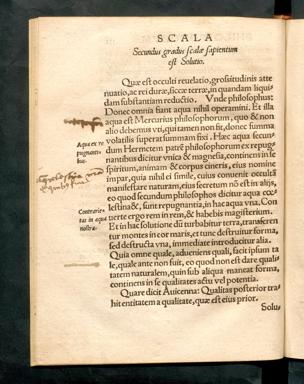 SCALA
Secundus gradus scalæ sapientum
est Solutio.
Quæ est occulti reuelatio, grossitudinis atte
nuatio, ac rei duræ, siccæ terræ, in quandam liqui-
dam substantiam reductio. Vnde philosophus:
Donec omnia fiant aqua nihil operamini. Et illa
aqua est Mercurius philosophorum, quo & non
alio debemus vti, qui tamen non fit, donec summa
volatilis superat summam fixi. Hæc aqua secun-
dum Hermetem patrē philosophorum ex repug-
nantibus dicitur vnica & magnesia, continens in se
spiritum, animam & corpus cineris, eius nomine
impar, quia nihil ei simile, cuius conuenit occultā
manifestare naturam, eius secretum nō est in alijs,
eo quod secundum philosophos dicitur aqua cœ-
lestina &, sunt repugnantia, in hac aqua vna. Con
uerte ergo rem in rem, & habebis magisterium.
Et in hac solutione diu turbabitur terra, transferen
tur montes in cor maris, et tunc destruitur forma,
sed destructa vna, immediate introducitur alia.
Quia omne quale, adueniens quali, facit ipsum ta
le, quale ante non fuit, eo quod non est dare quali-
tatem naturalem, quin sub aliqua maneat forma,
continens in se qualitates actu vel potentia.
Quare dicit Auicenna: Qualitas posterior tra-
hit entitatem a qualitate, quæ est eius prior.
Solu-
Aqua ex re
pugnanti-
bus.
Contrarie-
tas in aqua
nostra.